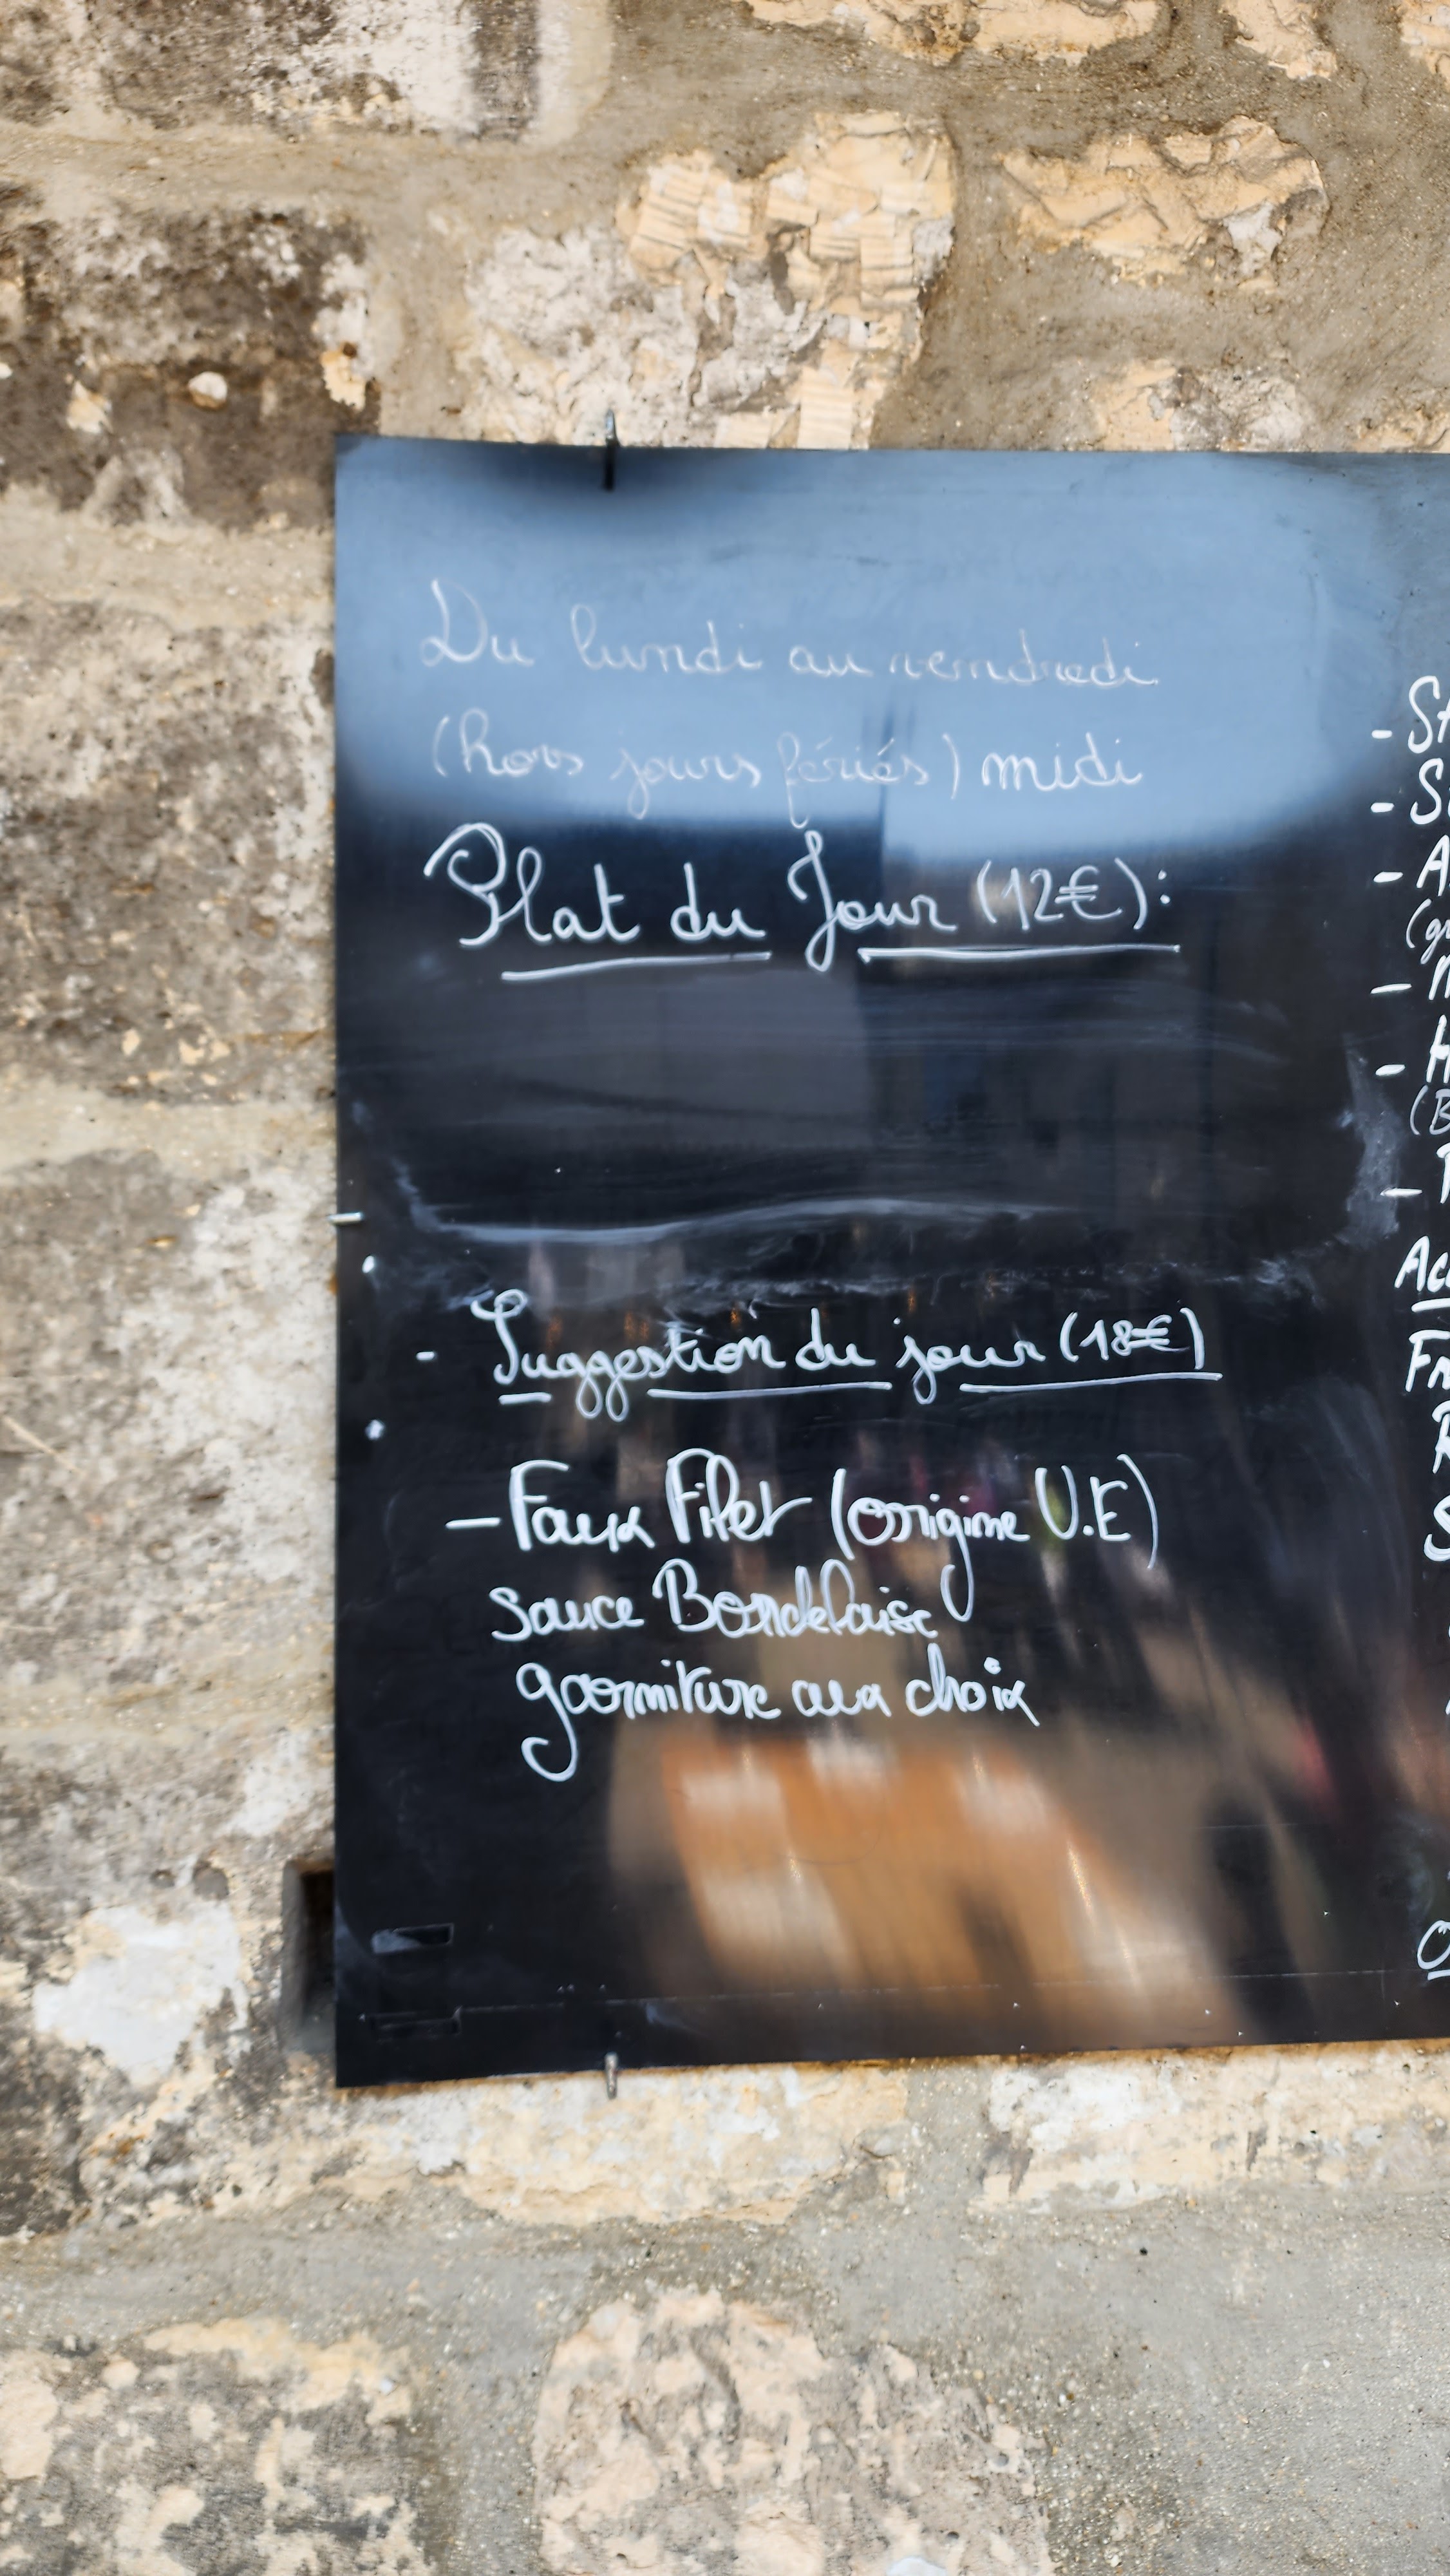 Du lundi au vendredi
(hors jours fériés) midi
Plat du Jour (12€):
- Suggestion du jour (18€)
- Faux Filet (origine U.E)
sauce Bordelaise
garniture au choix
- St
- S
- A
(gr
-
- H
(B
-
Acc
Fr
R
S
O